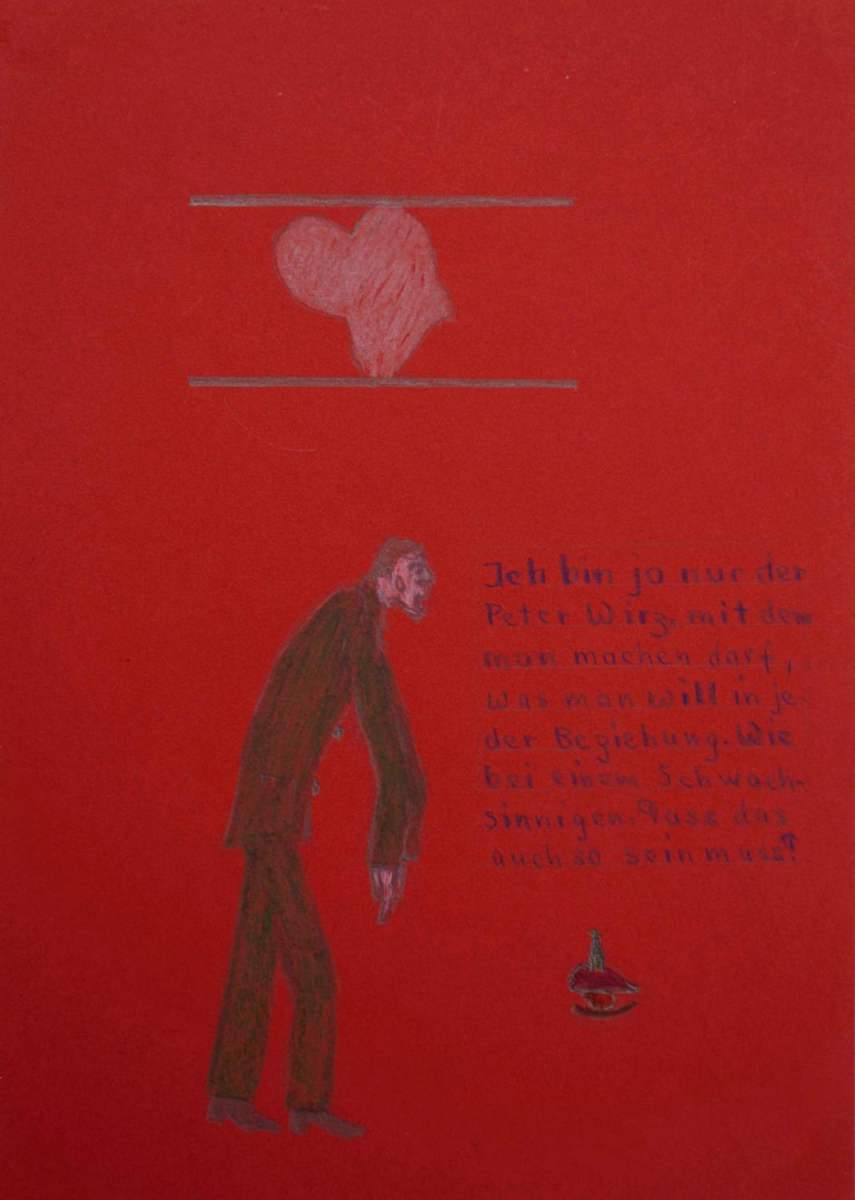 Ich bin jo nur der
Peter Wirz, mit dem
man machen darf,
was man will in je-
der Beziehung. Wie
bei einem Schwach-
sinnigen. Dass das
auch so sein muss?